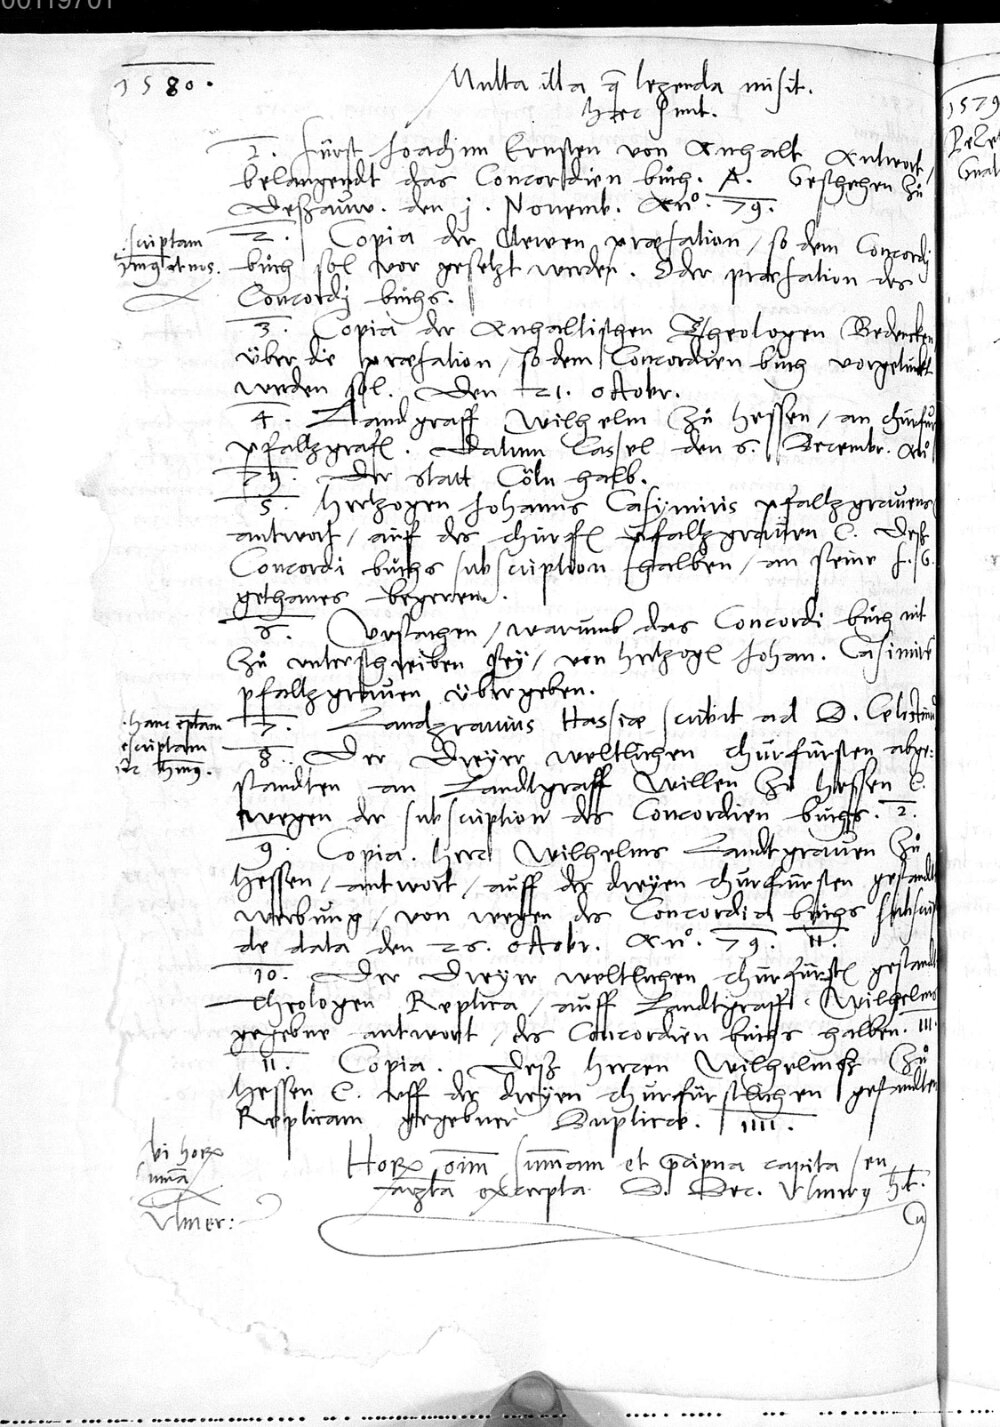 00119701
1580.
Multa illa q̃ legenda misit.
Haec sunt.
1. Fürst Joachim Ernsten von Anhalt Antwort,
belangendt das Concordien bůch. A. Geschehen zů
Deßauw. den j. Novemb. Anº. 79.
2. Copia der Newen præfation / so dem Concordj
bůch sol vor gesetzt werden. Oder præfation des
Concordj bůchs.
scriptam
3. Copia der Anhaltischen Theologen Bedencken
über die præfation / so dem Concordien bůch vorgetruckt
werden sol. Den 21. octobr.
4. Landgraff Wilhelm zů Hessen / an churfür
pfaltzgraf. Datum Cassel den 6. Decembr. Anº
79. Der statt Cöln halb.
5. Hertzogen Johanns Casimiris pfaltzgravens
antwort / auf des churf. pfaltzgraven &. Deß
Concordi bůchs subscription halben / an seine f. G.
gethanes begeren.
6. Ursachen / warumb das Concordi bůch nit
zů unterschreiben sey / von hertzog Johan. Casimirs
pfaltzgraven übergeben.
7. Landgravius Hassiæ scribit ad D.
8. Der Dreyer weltlichen churfürsten abge-
standten an Landtgraff Willen zů Hessen &.
wegen der subscription des Concordien bůchs. 2.
9. Copia. Herr Wilhelms Landtgraven zů
Hessen / antwort / auff der dreyen churfürsten gesandt
werbung / von wegen des Concordia bůchs subscrip
de data den 26. octobr. Anº. 79. II.
10. Der Dreyer weltlichen churfürst gesandt
Theologen Replica / auff Landtgraff Wilhelms
gegebne antwort / des Concordien bůchs halben. III.
11. Copia. Deß herren Wilhelms zů
Hessen &. uff der dreyen churfürstlichen gesandten
Replicam gegebner Duplicæ. IIII.
Horũ oĩm summam et præcipua capita seu
excerpta D. Dec. Ulmerg
vi horũ
summa
Ulmer:
1579